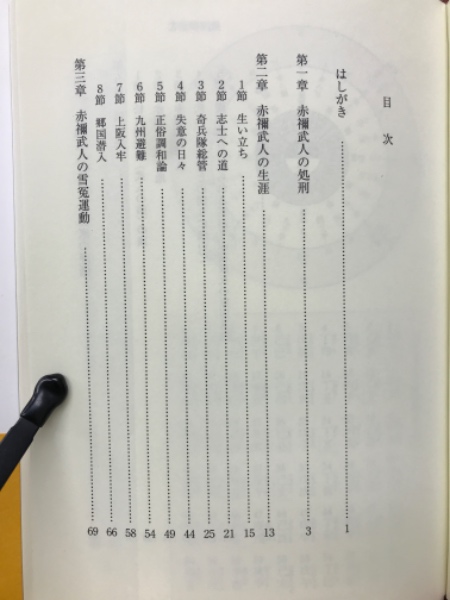 目次
はしがき……………………1
第一章 赤禰武人の処刑……………………3
第二章 赤禰武人の生涯……………………13
1節 生い立ち……………………15
2節 志士への道……………………21
3節 奇兵隊総管……………………25
4節 失意の日々……………………44
5節 正俗調和論……………………49
6節 九州避難……………………54
7節 上阪入牢……………………58
8節 郷国潜入……………………66
第三章 赤禰武人の雪冤運動……………………69